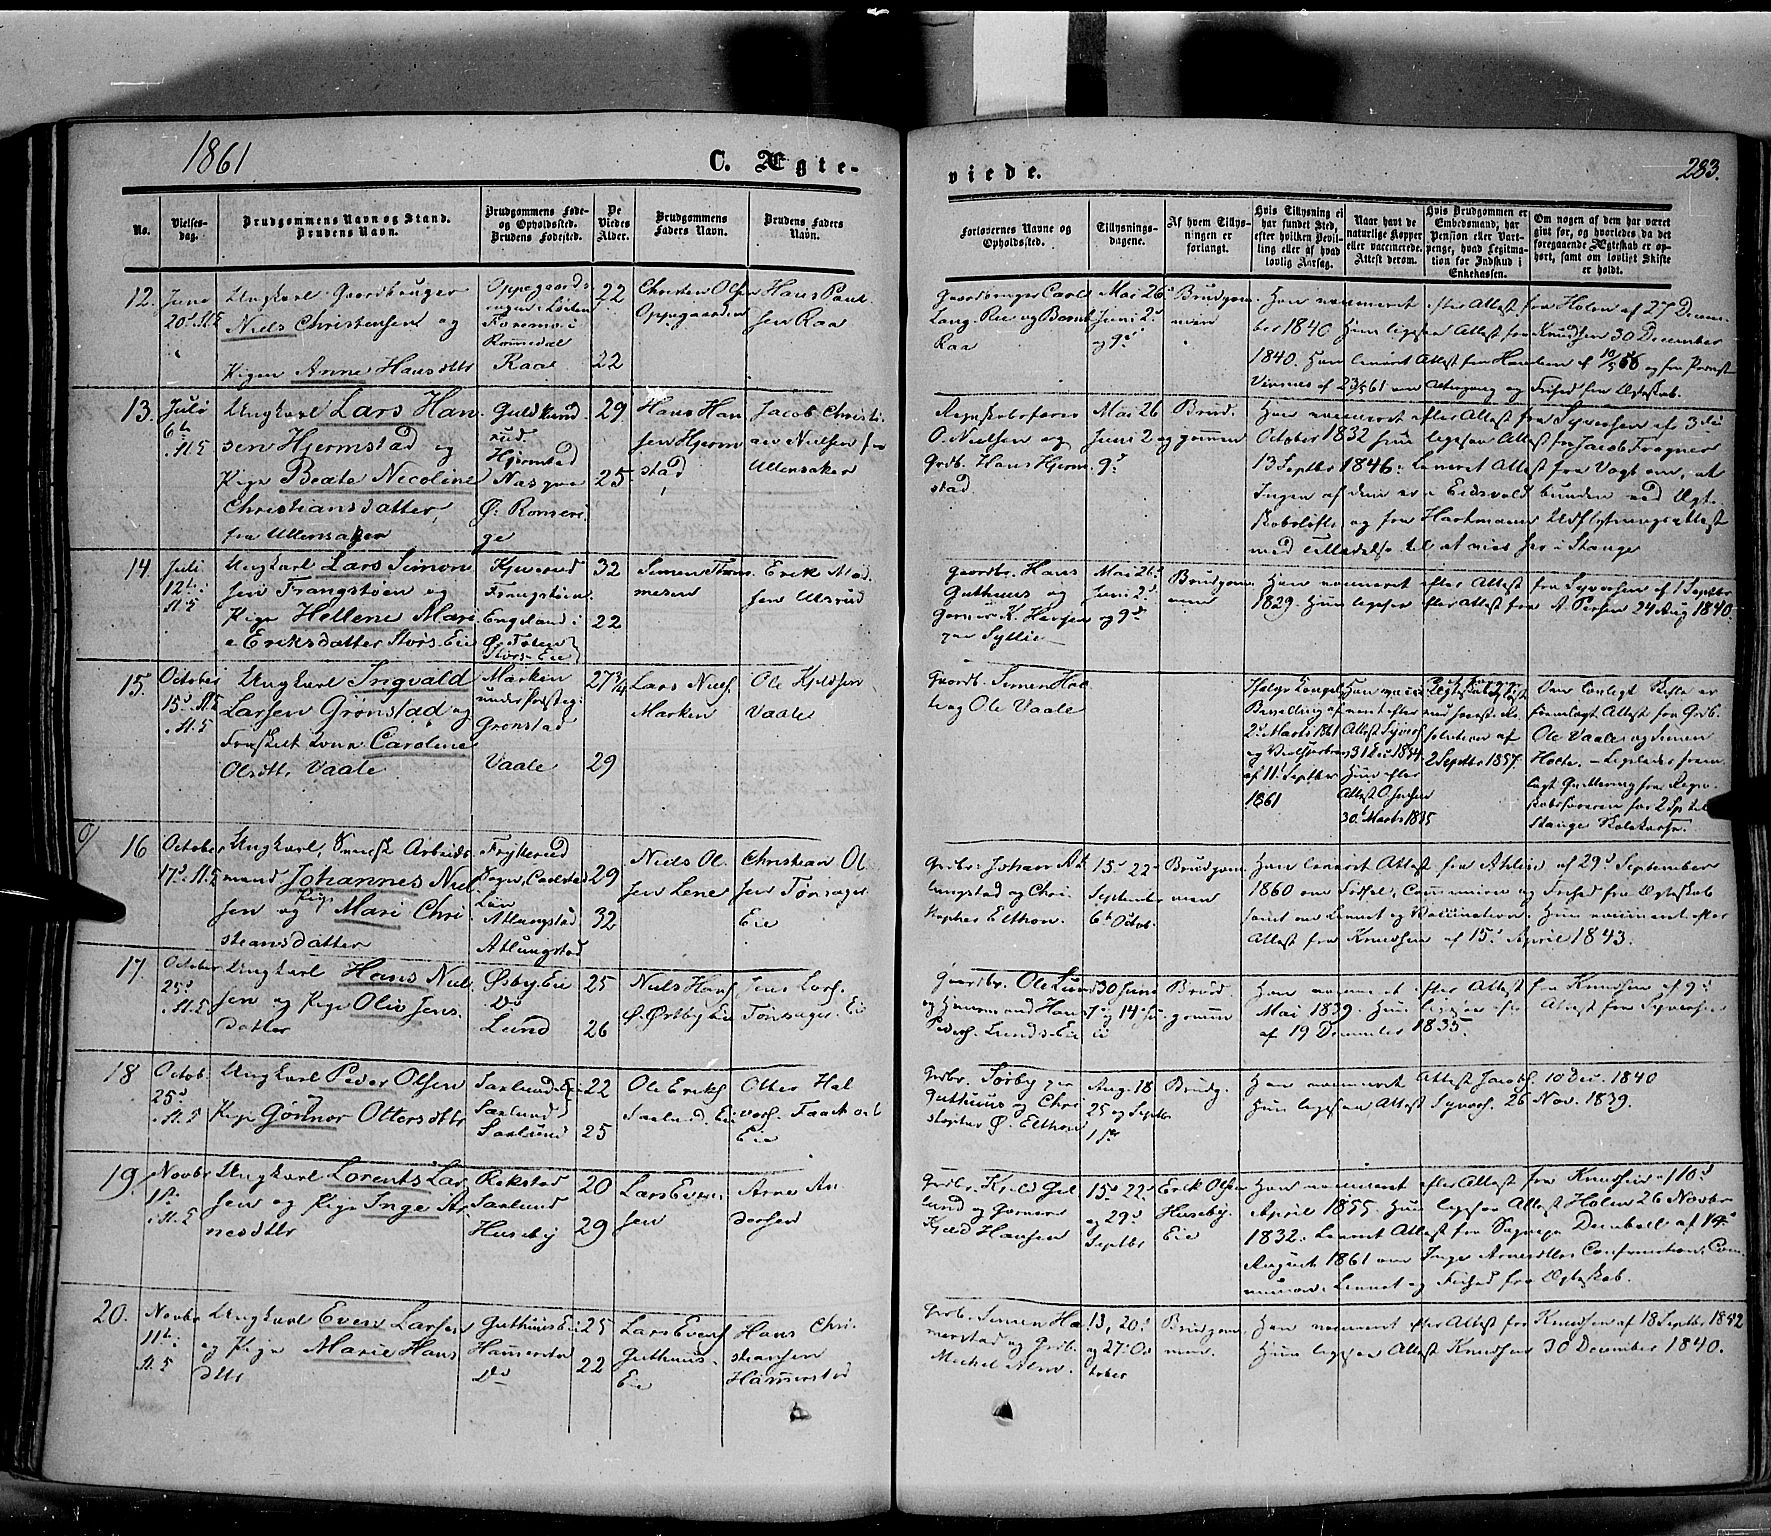 1861
C. Ægte-
viede.
283.
No.
Vielses-
dag.
Brudgommens Navn og Stand.
Brudens Navn.
Brudgommens Føde-
og Opholdssted.
Brudens Fødested.
De
Viedes
Alder.
Brudgommens
Faders Navn.
Brudens Faders
Navn.
Forlovernes Navne og
Opholdssted.
Tillysnings-
dagene.
Af hvem Tillys-
ningen er
forlangt.
Hvis Tillysning ei
har fundet Sted,
efter hvilken Bevil-
ling eller af hvad
lovlig Aarsag.
Naar havt de
naturlige Kopper
eller vaccinerede.
Attest derom.
Hvis Brudgommen er
Embedsmand, har
Pension eller Vart-
penge, hvad Legitima-
tion for Indskud i
Enkekassen.
Om nogen af dem har været
gift før, og hvorledes da det
foregaaende Ægteskab er op-
hørt, samt om lovligt Skifte
er holdt.
12.
Juni
20de St. K
Ungkarl Gaardbruger
Niels Christensen og
Pigen Anne Hansdttr
Oppegaard
Romedal
Raae
22
22
Christen Olsen
Oppegaarden
Hans Paul-
sen Raa
Gaardbruger Carl
Lang-Ree og Bernt
Raa
Mai 26
Juni 2
og 9de
Brudgom-
men
Han vaccineret efter Attest fra Holm af 27 Decem-
ber 1840 Hun ligesaa Attest fra Knudsen 30 December
1840. Han leveret Attest fra
13.
Juli
6te
St. K
Ungkarl Lars Han-
sen Hjermstad og
Pige Beate Nicoline
Christiansdatter,
fra Ullensaker
Guldkund-
rud.
Hjermstad
Nasque
Ø: Romeri-
ge
29
25
Hans Han-
sen Hjerm-
stad
Jacob Christi-
an Nielsen fra
Ullensaker
Regnskabsfører
O. Nielsen og
Grdb. Hans Hjerm-
stad.
Mai 26
Juni 2 og
9de
Brud-
gommen
Han vaccineret efter Attest fra Syversen af 3die
October 1832 Hun ligesaa Attest fra Jacob Frogner
13 Septbr 1846. Leveret Attest fra Vogt om, at
Ingen af dem er i Eidsvold bunden ved Ægte-
skabsløfte og fra Hartmann Udflytningsattest
med Tilladelse til at vies her i Stange
14.
Juli
12te
St. K
Ungkarl Lars Simon-
sen Frangstøen og
Pige Hellene Mari-
e Eriksdatter Stors-Eie
Kjverud
Frangstøen
Engeland i
Ø. Toten
Stors-Eie
32
22
Simen Thom-
mesen
Erik Mad-
sen Ulsrud
Gaardbr. Hans
Guthuus og
Garver K. Hansen
paa Syllie
Mai 26
Juni 2
og 9de
Brudgom-
men
Han vaccineret efter Attest fra Syversen af 1 Septbr
1829. Hun ligesaa efter Attest fra A. Persen 24 Aug 1840.
15.
October
15de St. K
Ungkarl Ingvald
Larsen Grønstad og
Fraskilt Kone Caroline
Olsdttr Vaale
Marken
under Præsteg.
Grønstad
Vaale
27 3/4
29
Lars Niels.
Marken
Ole Kjeldsen
Vaale
Gaardb. Simen Hol-
te og Ole Vaale
Ifølge Kongel.
Bevilling af
2den Marts 1861
af 11 Septbr
1861
Han vacci-
neret efter
Attest Syvers.
31 Dec 1834
Hun efter
Attest O. Jensen
30 Marts 1835
2 Septbr 1857.
Om lovligt Skifte er
fremlagt Attest fra Grdb.
Ole Vaale og Simen
Holte. – Ligeledes frem-
lagt Qvittering fra Regn-
skabsføreren for 2 Sp til
Stange Skolekasse.
16
October
17de St. K
Ungkarl, Svensk Arbeids-
mand Johannes Niel-
sen og Pige Mari Chri-
stiansdatter
Frykerud
Sogn, Carlstad
Len
Atlungstad
Atlungstad
29
32
Niels Ol-
sen Lene
Christian Ol-
sen Tønsager-
Eie
Grdbr. Johan At-
lungstad og Chri-
stopher Elthon.
15de 22de
September
6te Octob.
Brudgom-
men
Han leveret Attest fra Ahlin af 29de September
1860 om Fødsel, Communion og Frihed fra Ægteskab
samt om Levnet og Vaccination. Hun vaccineret efter
Attest fra Knudsen af 15de April 1843.
17.
October
25de
St. K
Ungkarl Hans Niel-
sen og Pige Oliv Jens-
datter
Østby Eie
Do
Lund
25
26
Niels Hans.
Ø. Østby Eie
Jens Lars.
Tønsager-Eie
Gaardbr. Ole Lund
og Huusmand Hans
Peders. Lunds-Eie
30 Juni
7 og 14 Ju-
li
Brud-
gommen
Han vaccineret efter Attest fra Knudsen af 9de
Mai 1839. Hun ligesaa efter Attest fra Syversen
af 19 December 1835.
18
Octob.
25de
St. K
Ungkarl Peder Olsen
Pige Gønnor Ottersdttr
Saxlund Eie
Saxlund
Saxlund
22
25
Ole Eriks.
Saxlund Eie
Otter Hal-
vors. Faackol
Eie
Grdbr. Sørby paa
Guthuus og Chri-
stopher Ø. Elthon
Aug 18
25 og Septbr
1ste
Brudg.
Han vaccineret Attest Jacobs. 10 Dec. 1840
Hun ligesaa Attest Syvers. 26 Nov. 1839.
19.
Novbr
1ste
St. K
Ungkarl Lorents Lar-
sen og Pige Inge Ar-
nesdttr
Rekstad
Saxlund
Huseby
20
29
Lars Even-
sen
Arne An-
dersen
Grdbr. Kjeld Gil-
lund og Garver
Kjeld Hansen
15de 22de
og 29de
Septbr
Erik Olsen
Huseby-
Eie
Han vaccineret efter Attest fra Knudsen 10de
April 1855. Hun ligesaa Attest Holm 26 Novbr
1832. Leveret Attest fra Sognepr Dunball af 14de
August 1861 om Inge Arnesdttrs Confirmation, Com-
munion, Levnet og Frihed fra Ægteskab.
20.
Novbr
11te
St. K
Ungkarl Even Larsen
og Pige Marie Hans-
dttr
Guthuus Eie
Hamerstad
Do
25
22
Lars Evens.
Guthuus-
Eie
Hans Chri-
stiansen
Hamerstad
Grdb. Simen Ha-
merstad og Grdb.
Michel Alm.
13, 20de
og 27 Oc-
tober
Brudgom-
men.
Han vaccineret efter Attest fra Knudsen af 18 Septbr 1842
Hun ligesaa Attest Knudsen 30 December 1840.